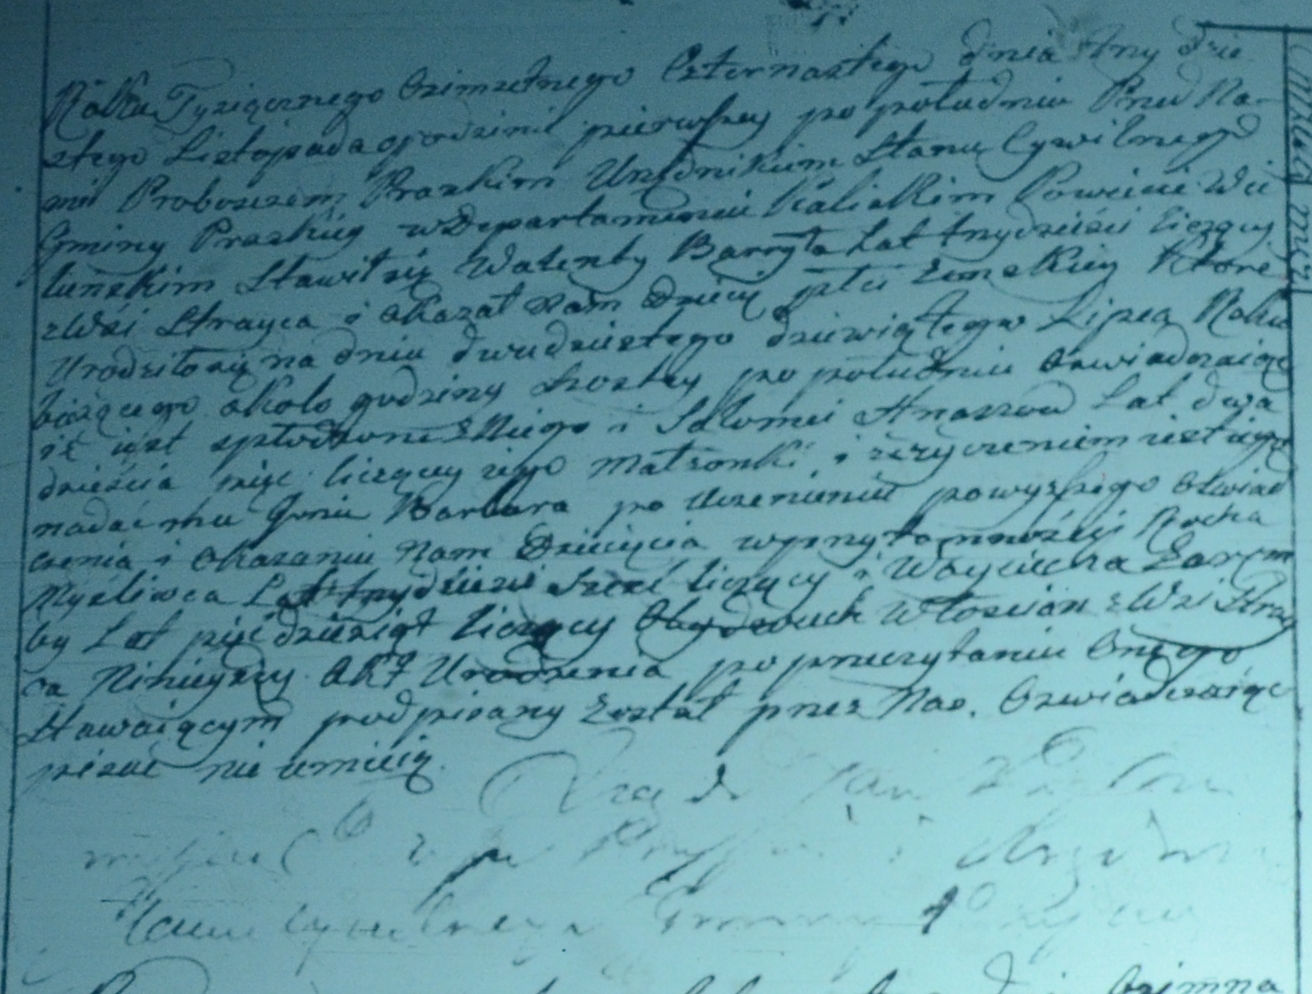 Roku Tysiącznego Osimsetnego Czternastego dnia trzy dzie
stego Listopada o godzinie pierwszey po południu Przed Na-
mi Proboszczem Praskim Urzędnikiem Stanu Cywilnego
Gminy Praskiey w Departamencie Kaliskim Powiecie Wie
luńskim Stawił się Walenty Baryła Lat trzydzieści liczący
z Wsi Strayca i okazał Nam Dziecię płci żenskiey które
Urodziło się na dniu dwudziestego dziewiątego Lipca Roku
bieżącego około godziny szostey po południu oswiadczaiąc
iż iest spłodzone z Niego i Salomei Lat dwa
dzieścia pięc liczącey iego małzonki, i życzeniem iest iego
nadać mu Imie Barbara po uczenieniu powyzszego oswiad
czenia i okazaniu Nam Dziecięcia w przytomności Rocha
Myśliwca Lat trzydzieści sześć liczący i Woyciecha Zarem
by Lat pięćdziesiąt liczący Obydwuch Włoscian z Wsi Stray
ca Ninieyszy Akt Urodzenia po przeczytaniu Onego
Stawaiącym podpisany został przez Nas. Oswiadczaiąc
pisać nie umieią.
Xiąd Jan
i
Stanu Cywilnego Gminy
Osimna